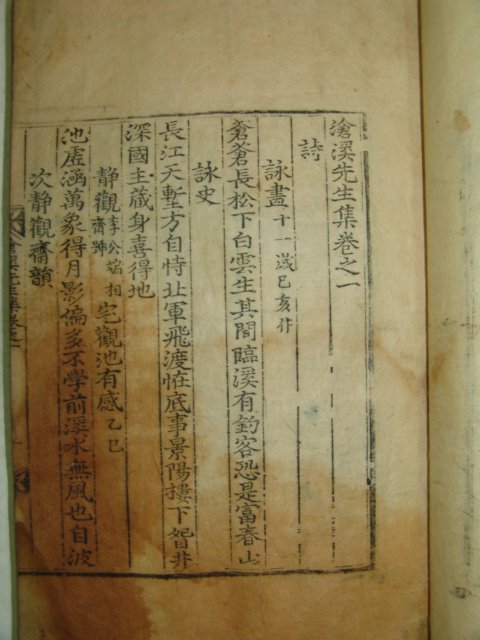 滄溪先生集卷之一
詩
詠畫 十一歲己亥作
蒼蒼長松下白雲生其間臨溪有釣客恐是富春山
詠史
長江天塹方自恃北軍飛渡恠底事景陽樓下眢井
深國主藏身喜得地
靜觀齋李公端相號宅觀池有感乙巳
池虛涵萬象得月影偏多不學前溪水無風也自波
次靜觀齋韻